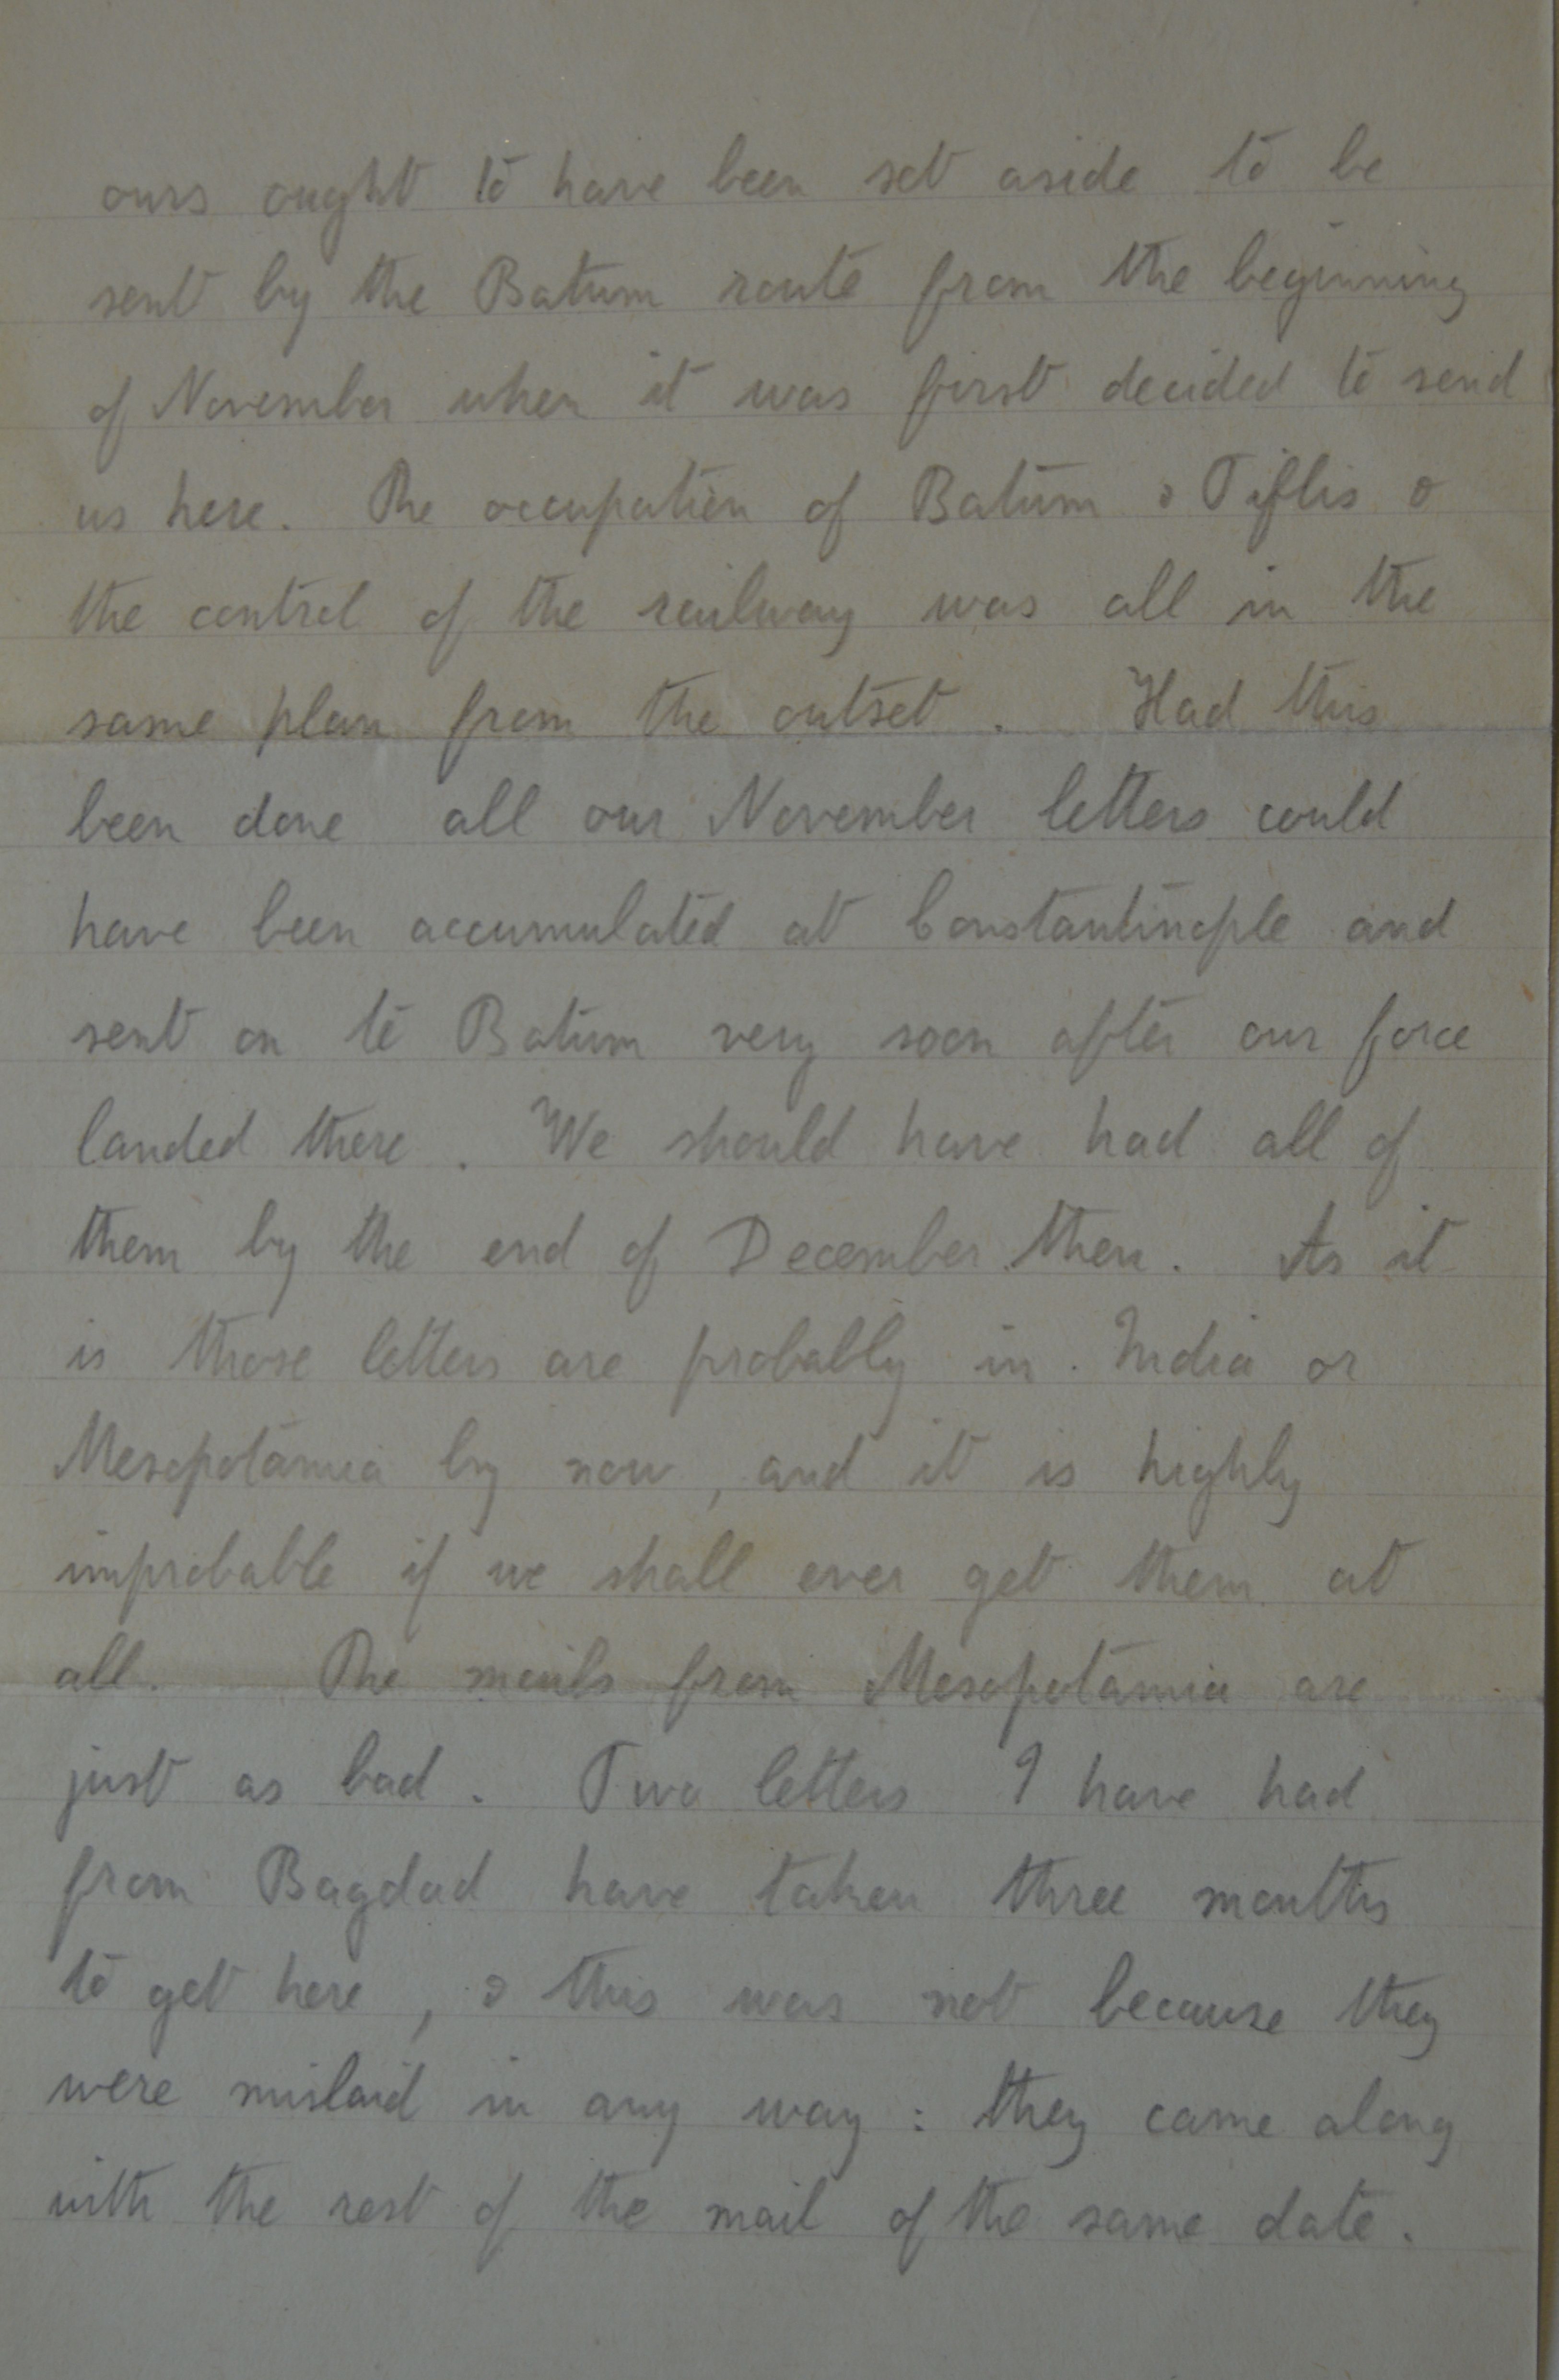 ours ought to have been set aside to be
sent by the Batum route from the beginning
of November when it was first decided to send
us here. The occupation of Batum & Tiflis &
the control of the railway was all in the
same plan from the outset. Had this
been done all our November letters could
have been accumulated at Constantinople and
sent on to Batum very soon after our force
landed there. We should have had all of
them by the end of December then. As it
is those letters are probably in India or
Mesopotamia by now, and it is highly
improbable if we shall ever get them at
all. The mails from Mesopotamia are
just as bad. Two letters I have had
from Bagdad have taken three months
to get here, & this was not because they
were mislaid in any way: they came along
with the rest of the mail of the same date.